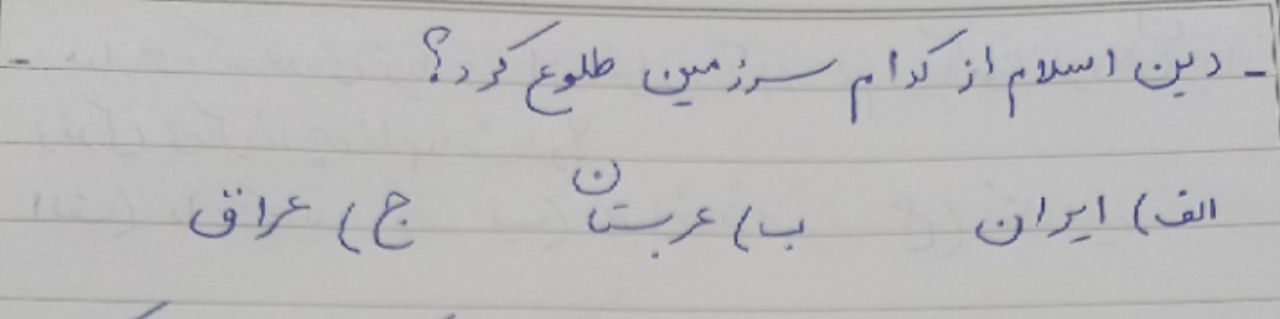 - دین اسلام از کدام سرزمین طلوع کرد؟
الف) ایران ب) عربستان ج) عراق